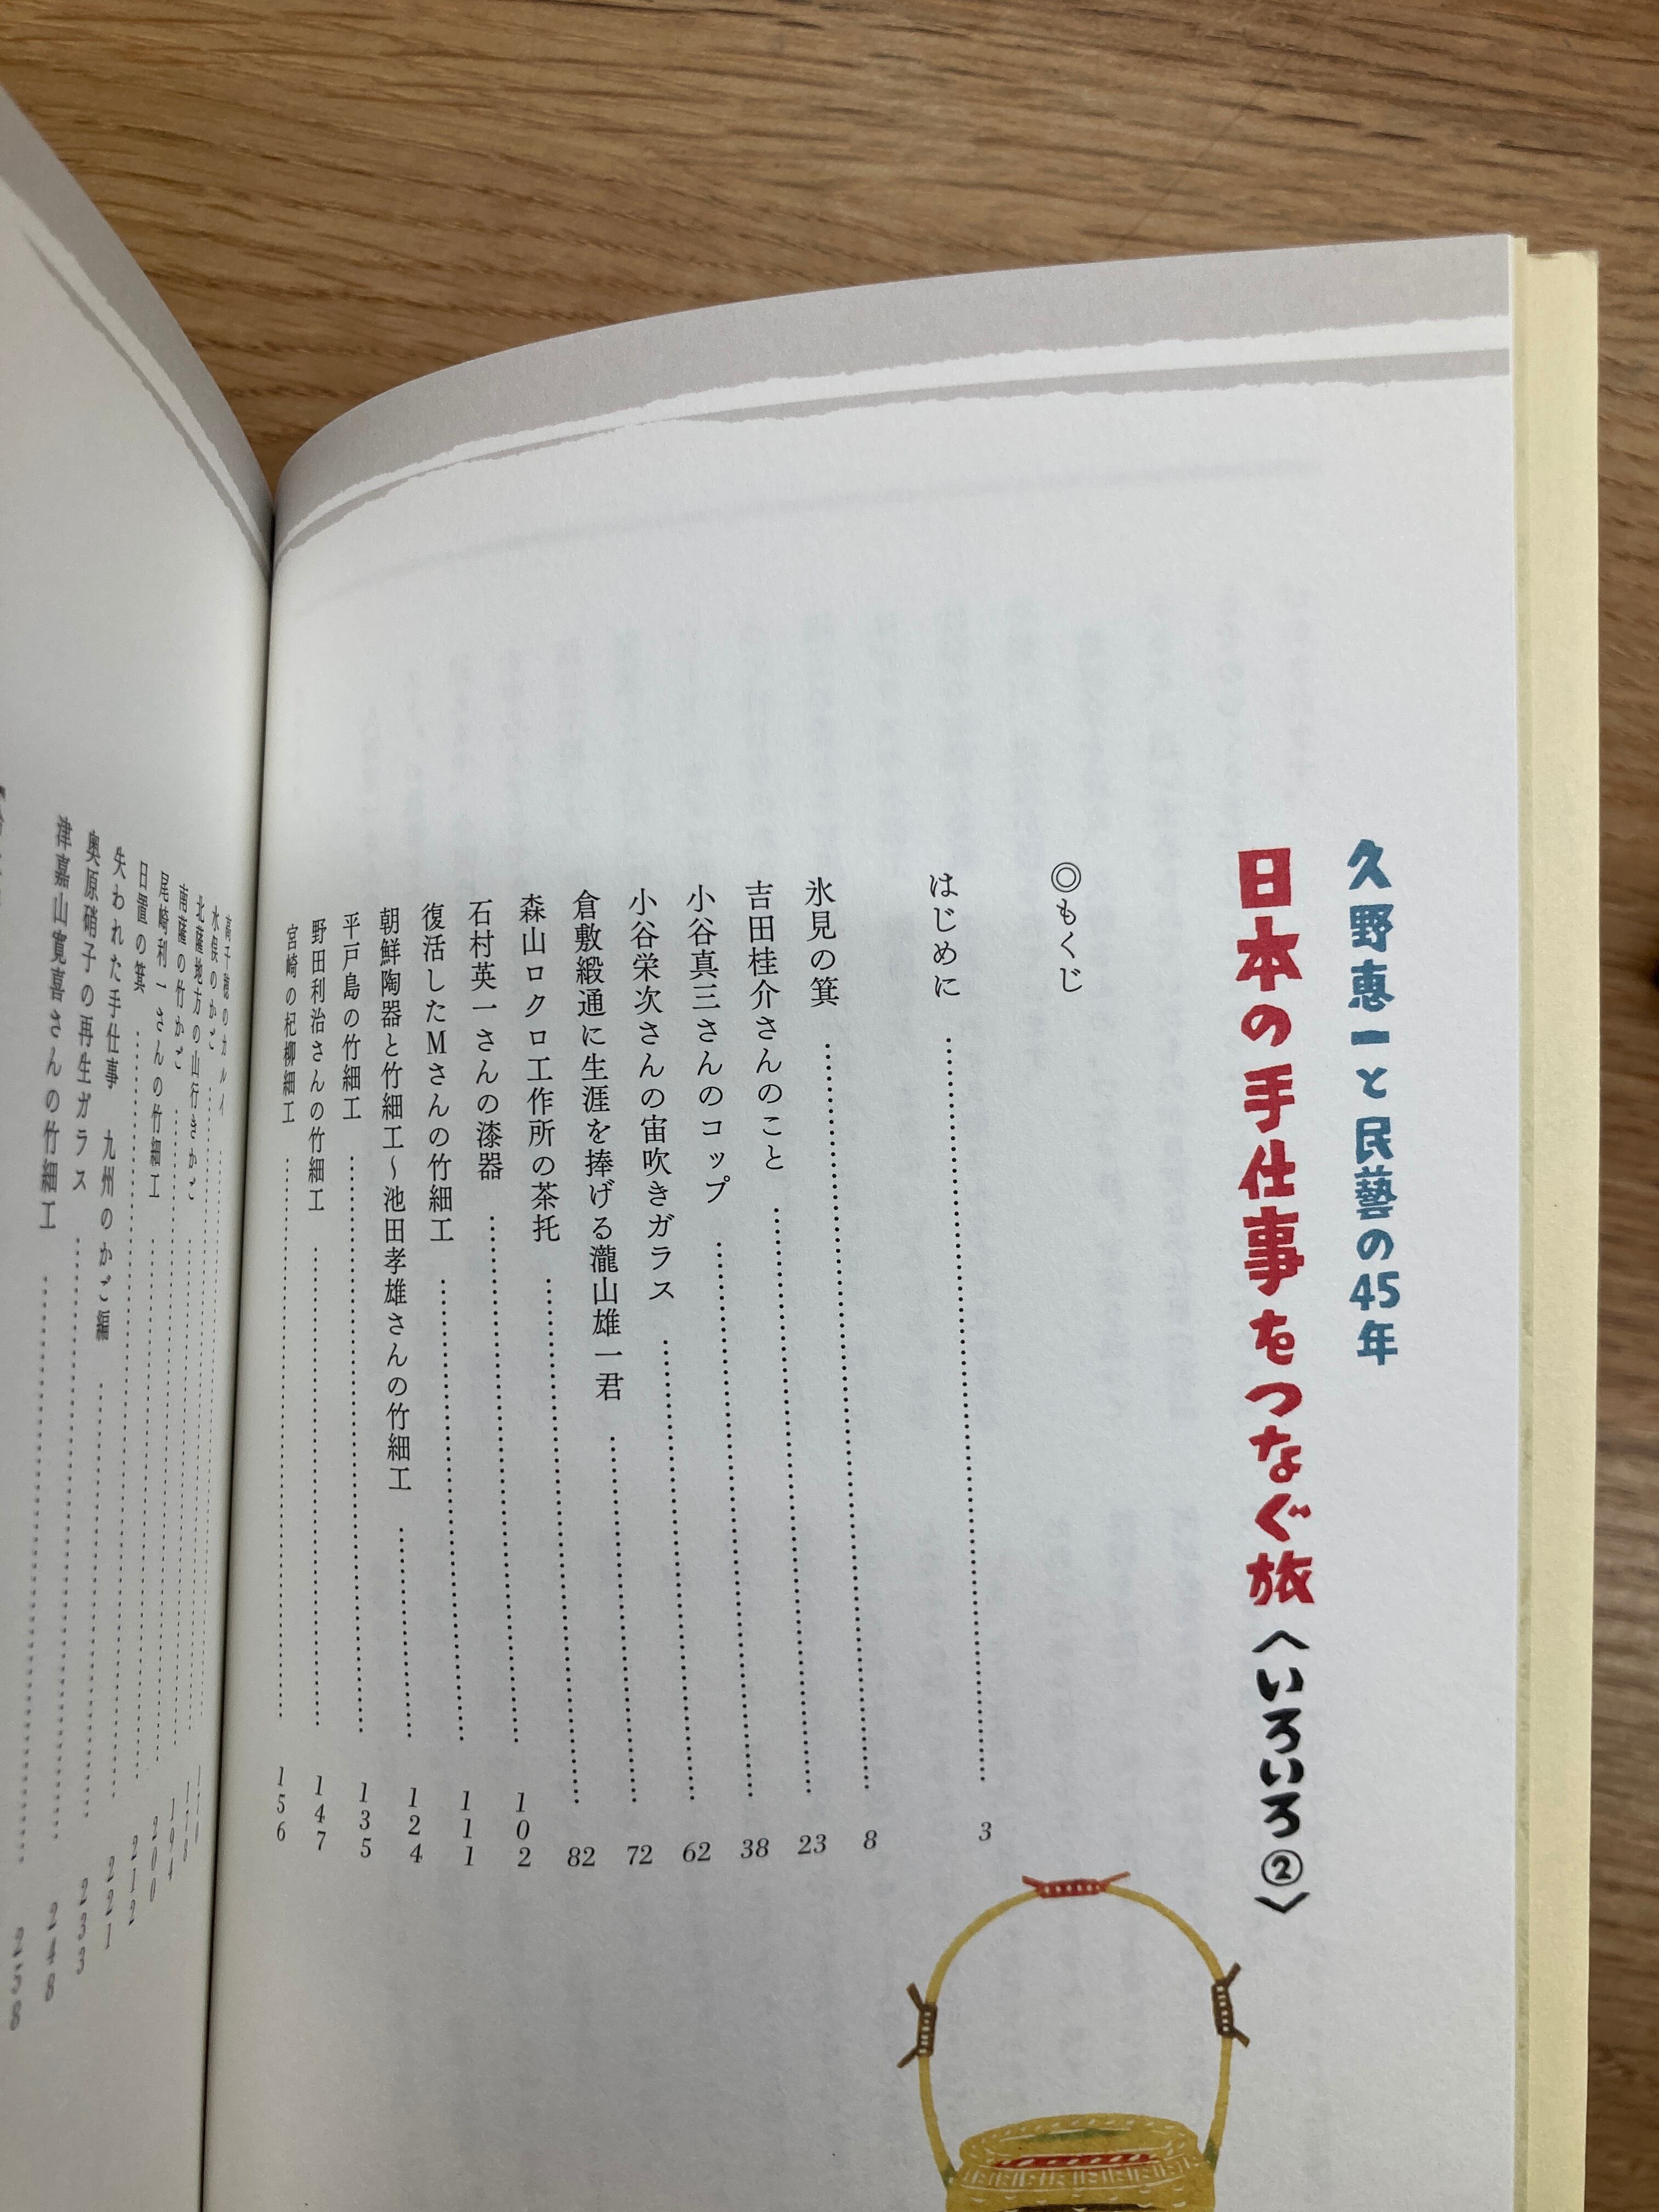 久野恵一と民藝の45年
日本の手仕事をつなぐ旅〈いろいろ②〉
◎もくじ
はじめに 3
氷見の箕 8
吉田桂介さんのこと 23
小谷真三さんのコップ 38
小谷栄次さんの宙吹きガラス 62
倉敷緞通に生涯を捧げる瀧山雄一君 72
森山ロクロ工作所の茶托 82
石村英一さんの漆器 102
復活したMさんの竹細工 111
朝鮮陶器と竹細工〜池田孝雄さんの竹細工 124
平戸島の竹細工 135
野田利治さんの竹細工 147
宮崎の杞柳細工 156
高千穂のカルイ
水俣のかご 178
北薩地方の山行きかご 194
南薩の竹かご 200
尾崎利一さんの竹細工 212
日置の箕 221
失われた手仕事 九州のかご編 233
奥原硝子の再生ガラス 248
津嘉山寛喜さんの竹細工 258